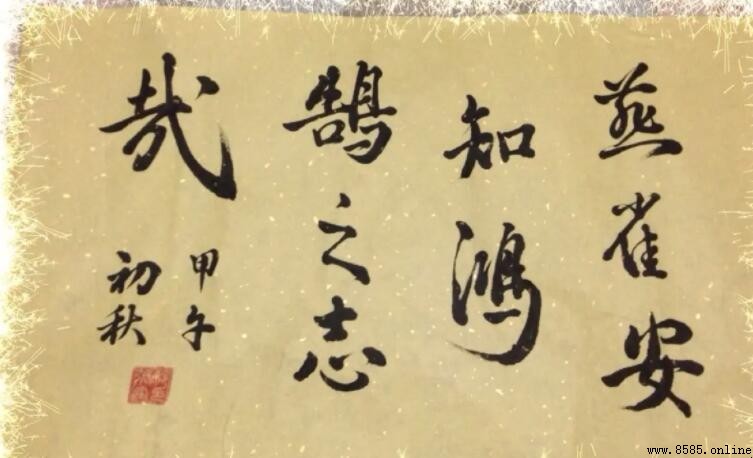 燕雀安
知鸿
鹄之志
哉
甲午
初秋
www.8585.online